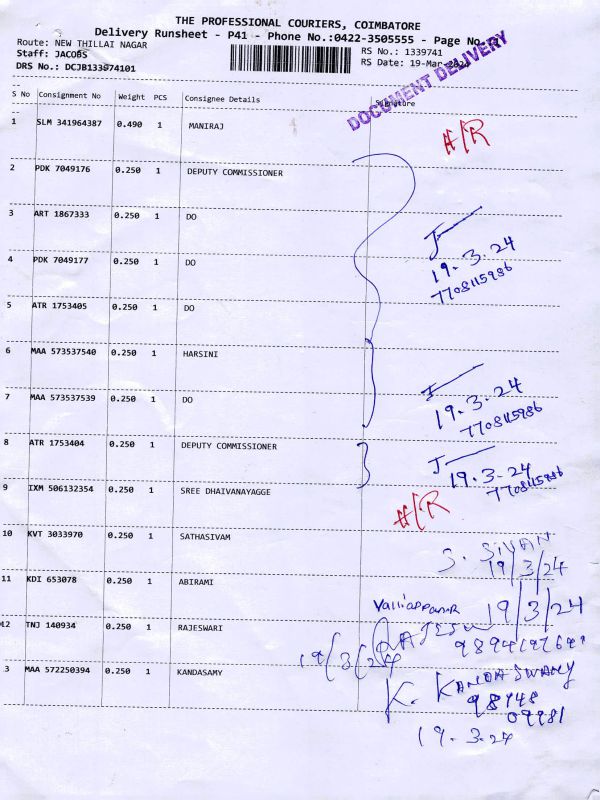 THE PROFESSIONAL COURIERS, COIMBATORE
Delivery Runsheet - P41 - Phone No.:0422-3505555 - Page No.
Route: NEW THILLAI NAGAR
RS No.: 1339741
Staff: JACOBS
RS Date: 19-Mar-2024
DRS No.: DCJB133974101
DOCUMENT DELIVERY
S No Consignment No Weight PCS Consignee Details Signature
1 SLM 341964387 0.490 1 MANIRAJ H/R
2 PDK 7049176 0.250 1 DEPUTY COMMISSIONER
3 ART 1867333 0.250 1 DO
4 PDK 7049177 0.250 1 DO
19.3.24
7708115986
5 ATR 1753405 0.250 1 DO
6 MAA 573537540 0.250 1 HARSINI
7 MAA 573537539 0.250 1 DO
19.3.24
7708115986
8 ATR 1753404 0.250 1 DEPUTY COMMISSIONER
19.3.24
7708115986
9 IXM 506132354 0.250 1 SREE DHAIVANAYAGGE H/R
10 KVT 3033970 0.250 1 SATHASIVAM
S. SIVAN
19/3/24
11 KDI 653078 0.250 1 ABIRAMI
Valliappan 19/3/24
12 TNJ 140934 0.250 1 RAJESWARI
19/3/24
3 MAA 572250394 0.250 1 KANDASAMY
K. KANDASWAMY
98948
09981
19.3.24